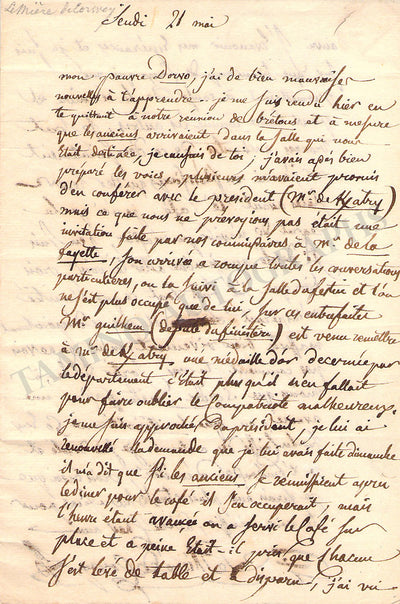 Le Mière de Corvey
Jeudi 21 mai
mon pauvre Dorvo, j'ai de bien mauvaises
nouvelles à t'apprendre - je me suis rendu hier en
te quittant à notre réunion de bretons et à mesure
que les anciens arrivaient dans la salle qui nous
était destinée, je causais de toi, j'avais assés bien
préparé les voies, plusieurs m'avaient promis
d'en conférer avec le president (Mr. de Kératry)
mais ce que nous ne prévoyions pas était une
invitation faite par nos commissaires à Mr. de la
fayette, son arrivée a rompu toutes les conversations
particulières, on l'a suivi à la salle du festin et l'on
ne s'est plus occupé que de lui, sur ces entrefaites
Mr. guilhem (du finistère) est venu remettre
à mr de Kératry une médaille d'or décernée par
le département, c'était plus qu'il n'en fallait
pour faire oublier le compatriote malheureux.
je me suis approché du président, je lui ai
renouvellé la demande que je lui avais faite dimanche
il m'a dit que si les anciens se réunissient après
le diner pour le café il s'en occuperait, mais
l'heure étant avancée on a servi le café sur
place et a peine était-il pris que chacun
s'est levé de table et a disparu, j'ai vu